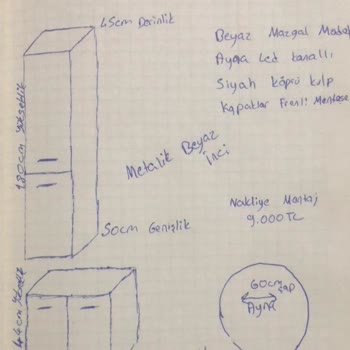 45cm Derinlik
Beyaz Mazgal Model
Ayna Led kanallı
Siyah köprü kulp
Kapaklar Frenli Menteşe
180cm yükseklik
Metalik Beyaz
İnci
50cm Genişlik
Nakliye Montaj
9.000TL
60cm
çap
Ayna